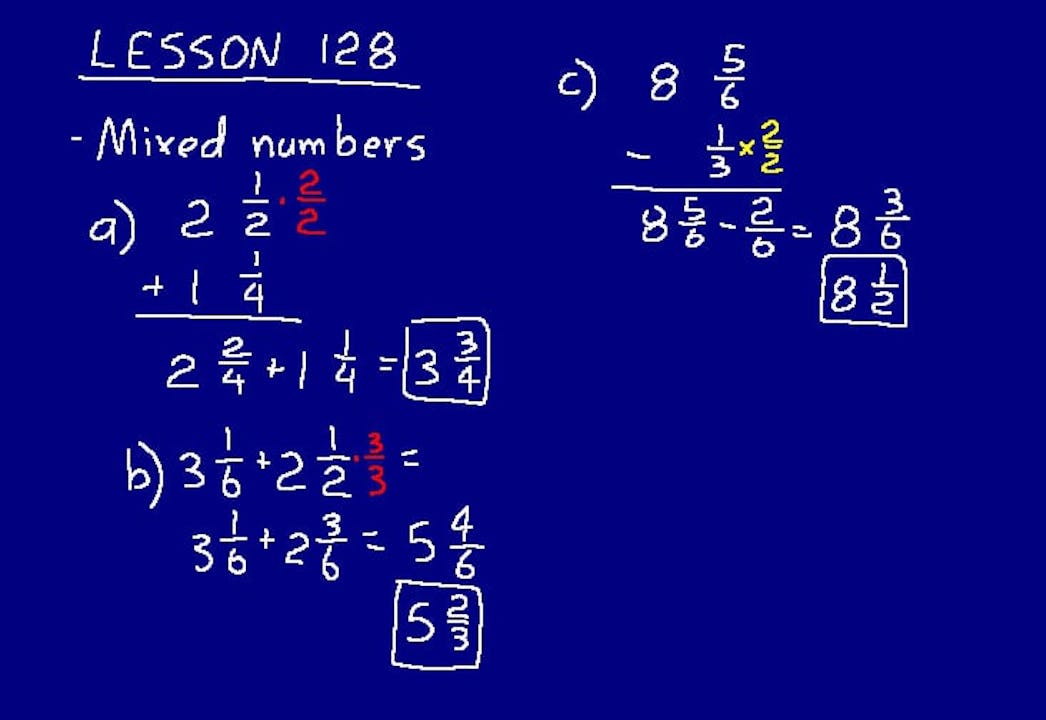 LESSON 128
- Mixed numbers
a) 2 1/2 · 2/2
+ 1 1/4
2 2/4 + 1 1/4 = 3 3/4
b) 3 1/6 + 2 1/2 · 3/3 =
3 1/6 + 2 3/6 = 5 4/6
5 2/3
c) 8 5/6
- 1/3 × 2/2
8 5/6 - 2/6 = 8 3/6
8 1/2